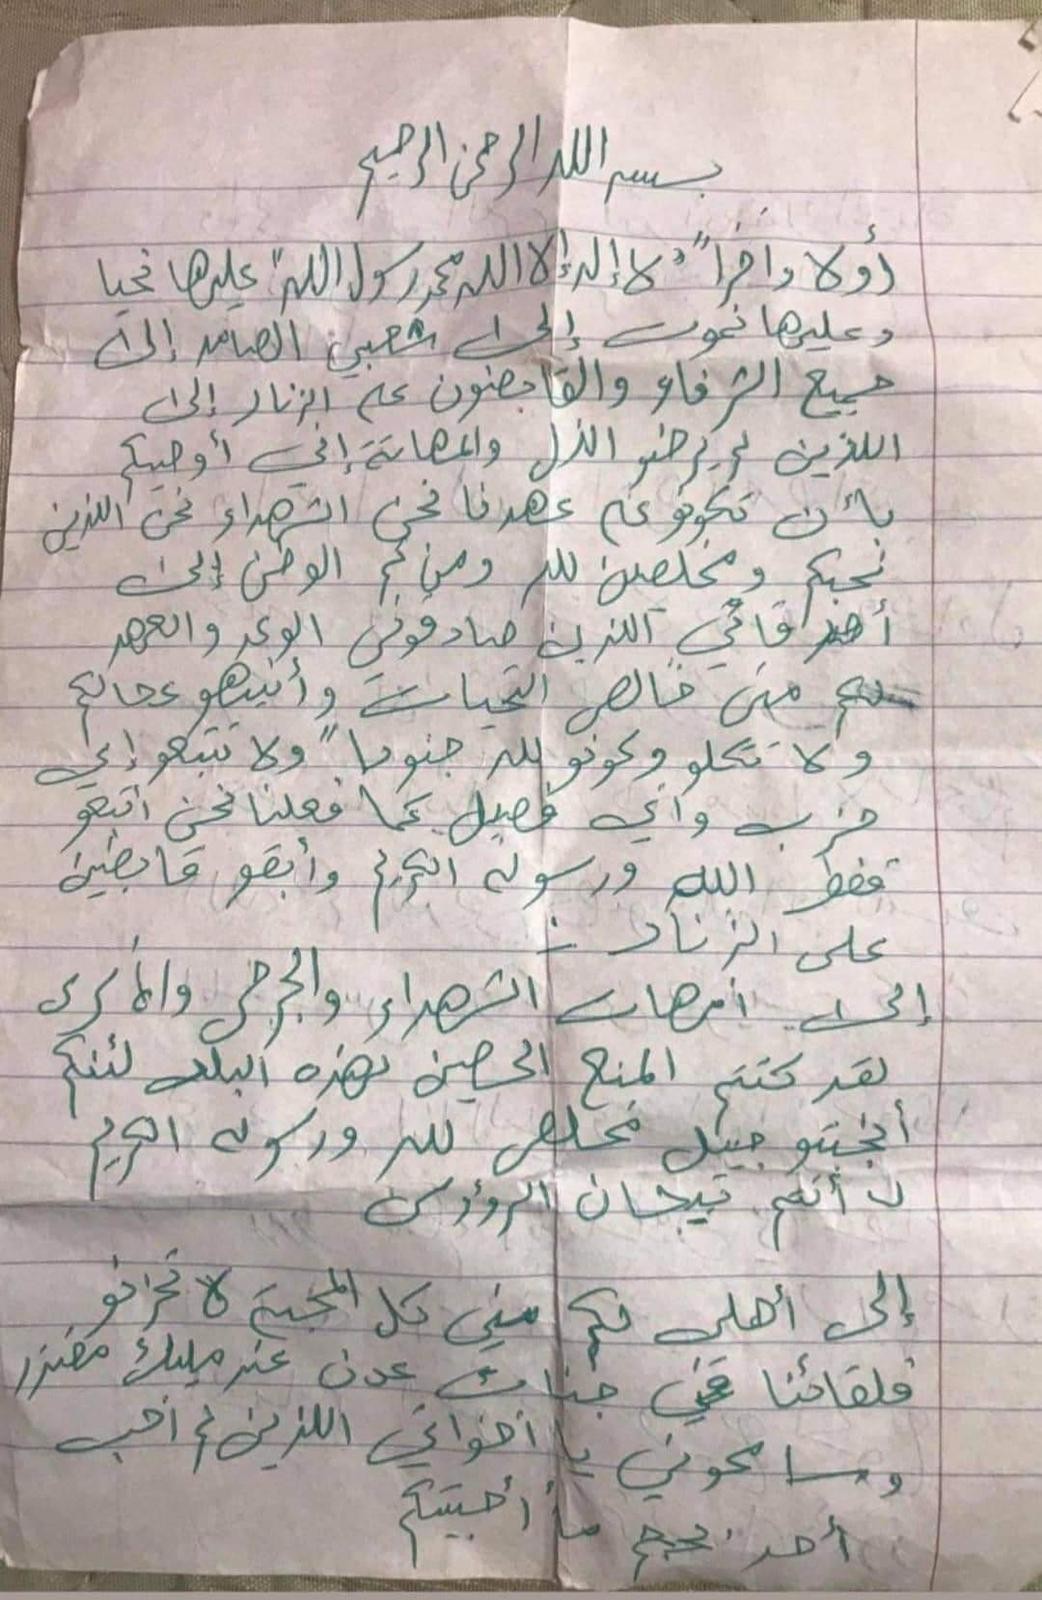 بسم الله الرحمن الرحيم
أولا واخرا" "لا إله إلا الله محمد رسول الله" عليها نحيا
وعليها نموت إلى شعبي الصامد إلى
جميع الشرفاء والقابضون على الزناد إلى
اللذين لم يرضو الذل والمهانة إني أوصيكم
بأن تكونو على عهدنا نحن الشهداء نحن اللذين
نحبكم ومخلصين لله ومن ثم الوطن إلى
أصدقائي اللذين صادقوني الوعد والعهد
لكم مني خالص التحيات وأنتبهو عحالكم
ولا تتكلو وكونو لله جنودا" ولا تتبعو إي
حزب وأي فصيل كما فعلنا نحن أتبعو
فقط الله ورسوله الكريم وأبقو قابضين
على الزناد :
إلى أمهات الشهداء والجرحى والأسرى
لقد كنتم المنبع الحصين لهذه البلاد لئنكم
أنجبتو جيل مخلص لله ورسوله الكريم
أنتم تيجان الرؤوس
إلى أهلي لكم مني كل المحبة لا تحزنو
فلقائنا في جنات عدن عند مليك مقتدر
وسامحوني يا أخواتي اللذين لم أحب
أحد بحجم ما أحببتكم